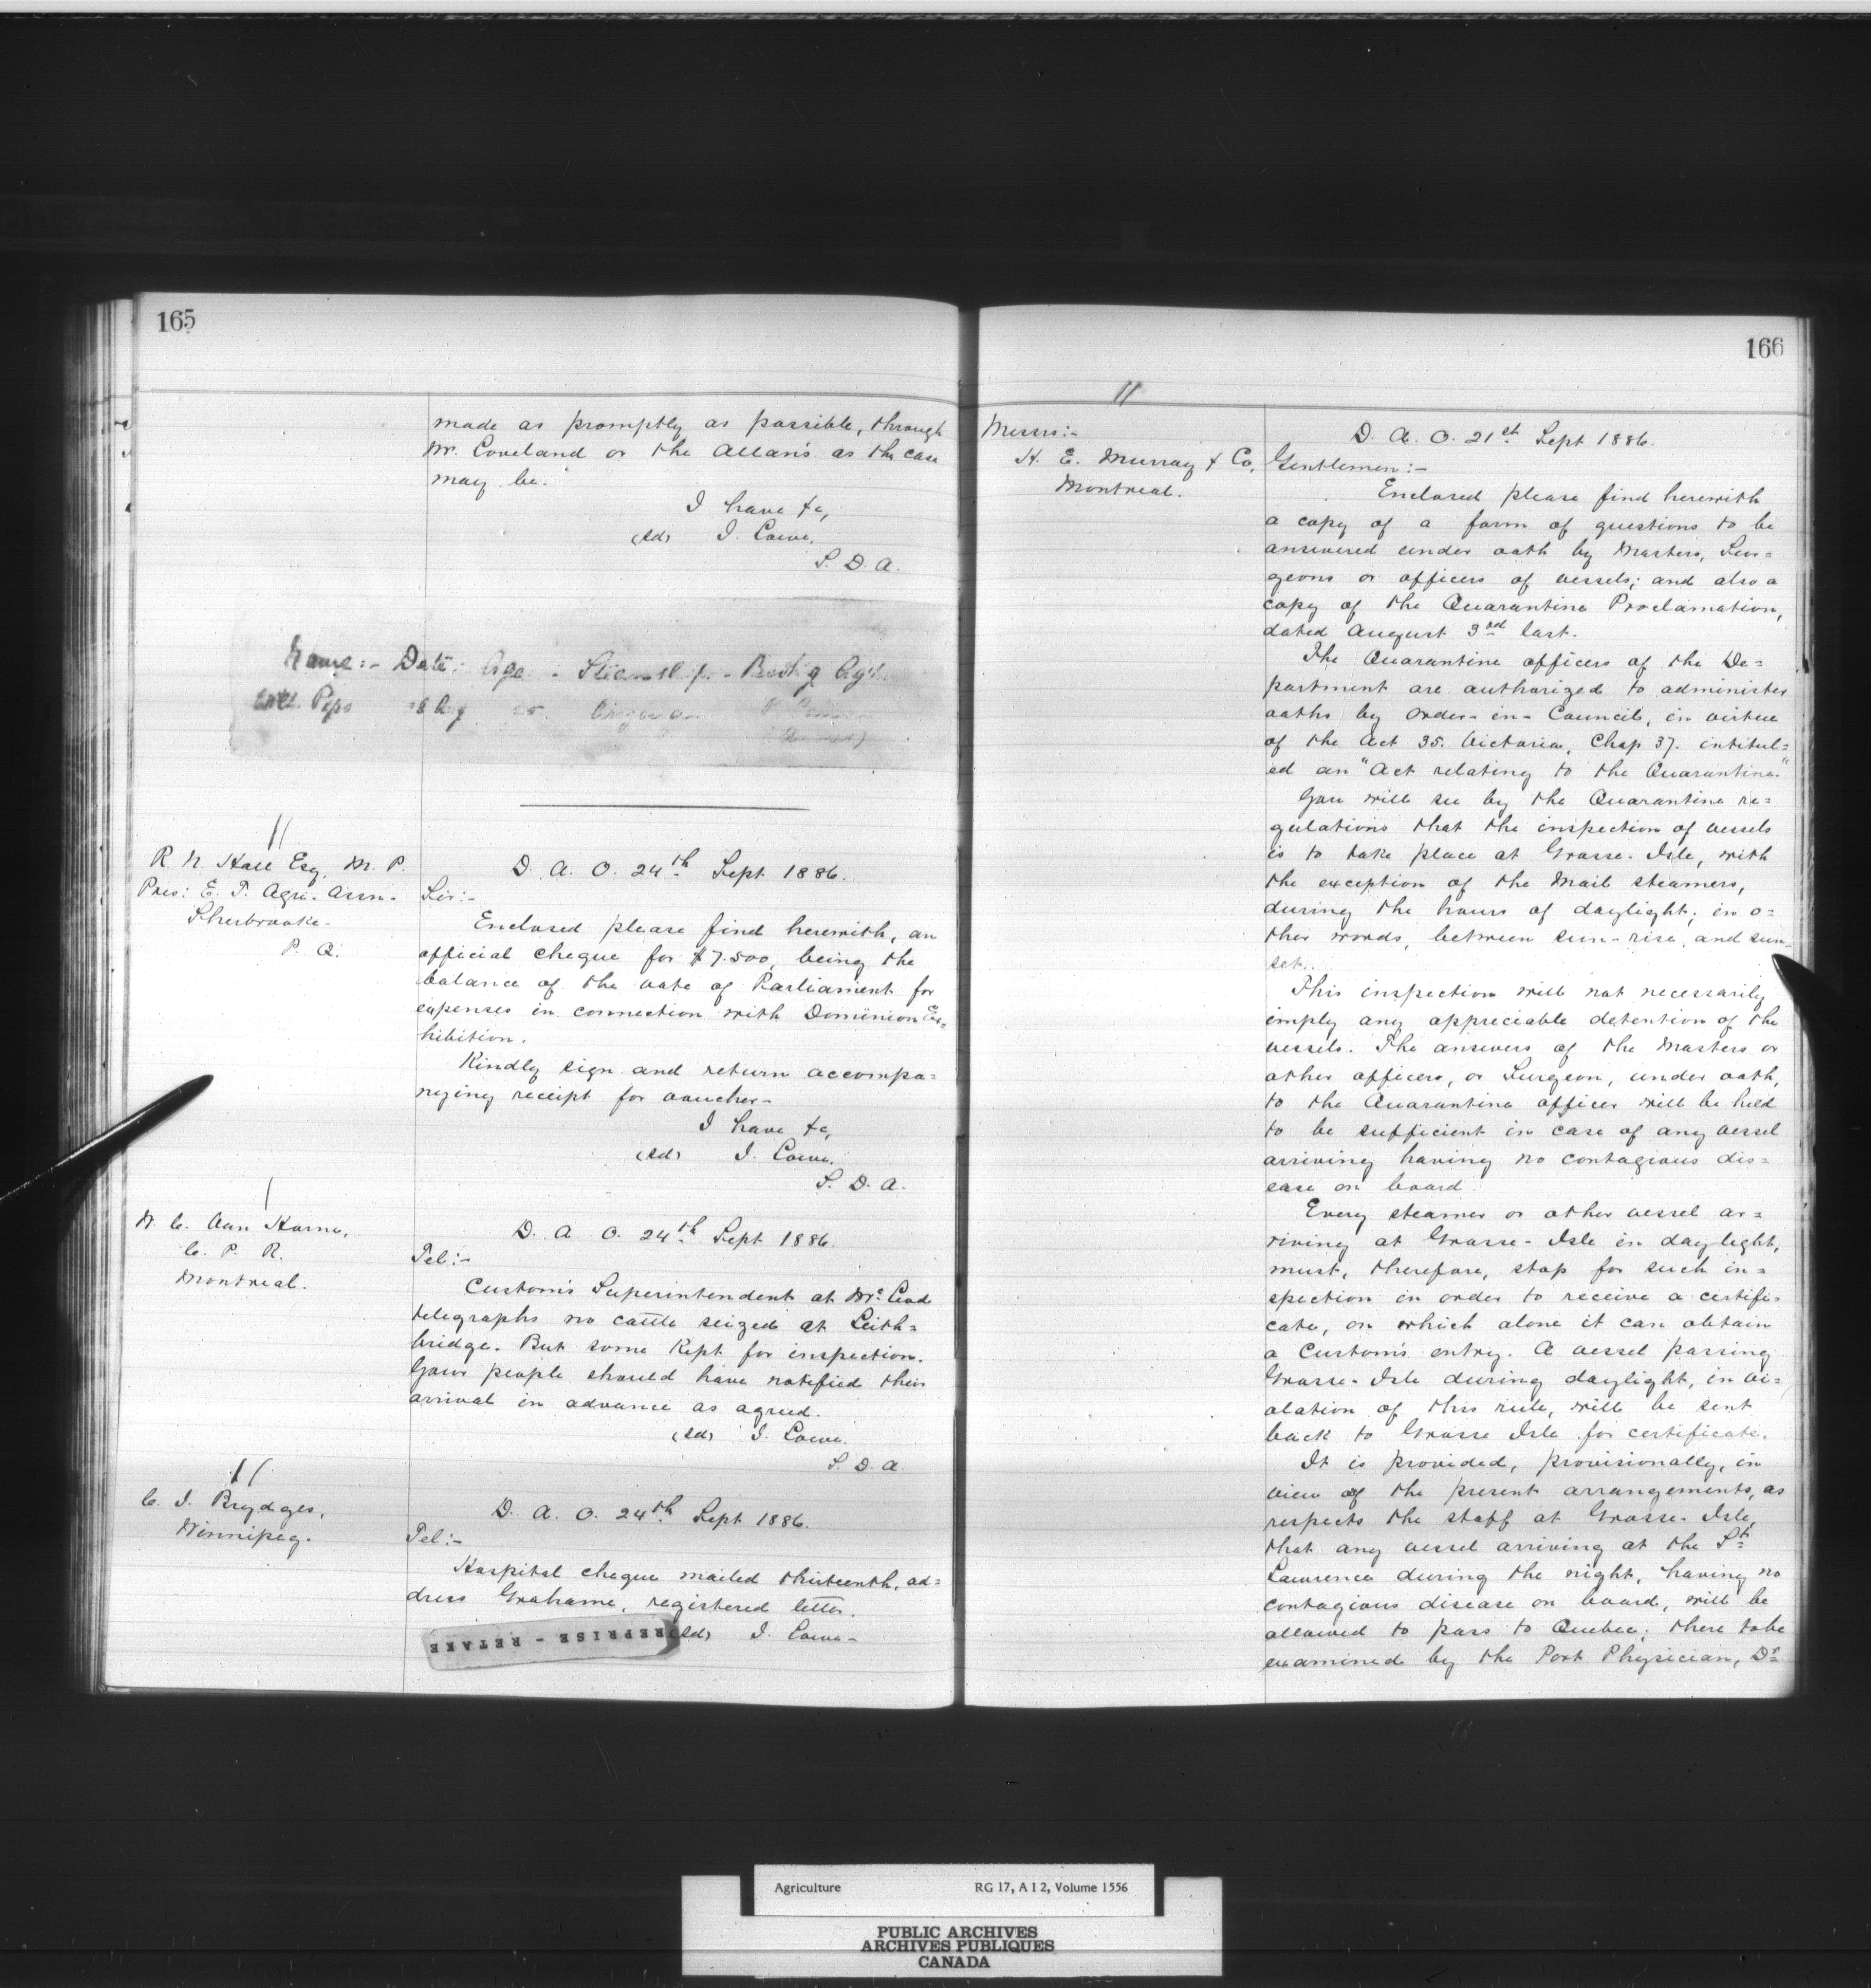 165
made as promptly as possible, through
Mr. Loveland or the Allan's as the case
may be.
I have &c,
(sd) J. Lowe.
S. D. A.
Name:- Date: Age - Steamship - Bookg Agt.
Pips 18 Aug 25
11
R. N. Hall Esq. M. P.
Pres: E. T. Agri. Assn.
Sherbrooke-
P. Q.
D. A. O. 24th Sept 1886.
Sir:-
Enclosed please find herewith, an
official cheque for $7.500, being the
balance of the vote of Parliament for
expenses in connection with Dominion Ex=
hibition.
Kindly sign and return accompa=
nying receipt for voucher-
I have &c,
(sd) J. Lowe.
S. D. A.
1
W. C. Van Horne,
C. P. R.
Montreal.
D. A. O. 24th Sept 1886.
Tel:-
Custom's Superintendent at McLeod
telegraphs no cattle seized at Leith=
bridge. But some Kept for inspection.
Your people should have notified their
arrival in advance as agreed.
(sd) J. Lowe.
S. D. A.
11
C. J. Brydges,
Winnipeg.
D. A. O. 24th Sept 1886.
Tel:-
Hospital cheque mailed thirteenth, ad=
dress Grahame, registered letter.
(sd) J. Lowe-
REPRISE - RETAKE
166
11
Messrs:-
H. E. Murray & Co,
Montreal.
D. A. O. 21st Sept 1886.
Gentlemen:-
Enclosed please find herewith
a copy of a form of questions to be
answered under oath by Masters, Sur=
geons or officers of vessels; and also a
copy of the Quarantine Proclamation,
dated August 3rd last.
The Quarantine officers of the De=
partment are authorized to administer
oaths by Order-in-Council, in virtue
of the Act 35. Victoria, Chap 37. intitul=
ed an "Act relating to the Quarantine."
You will see by the Quarantine re=
gulations that the inspection of vessels
is to take place at Grosse-Isle, with
the exception of the Mail steamers,
during the hours of daylight; in o=
ther words, between sun-rise and sun-
set.
This inspection will not necessarily
imply any appreciable detention of the
vessels. The answers of the Masters or
other officers, or Surgeon, under oath,
to the Quarantine officer will be held
to be sufficient in case of any vessel
arriving having no contagious dis=
ease on board.
Every steamer or other vessel ar=
riving at Grosse-Isle in daylight,
must, therefore, stop for such in=
spection in order to receive a certifi=
cate, on which alone it can obtain
a Custom's entry. A vessel passing
Grosse-Isle during daylight, in vi=
olation of this rule, will be sent
back to Grosse Isle for certificate.
It is provided, provisionally, in
view of the present arrangements, as
respects the staff at Grosse-Isle,
that any vessel arriving at the St
Lawrence during the night, having no
contagious disease on board, will be
allowed to pass to Quebec; there to be
examined by the Port Physician, Dr
Agriculture RG 17, A I 2, Volume 1556
PUBLIC ARCHIVES
ARCHIVES PUBLIQUES
CANADA